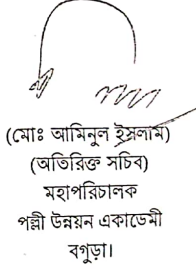 (মোঃ আমিনুল ইসলাম)
(অতিরিক্ত সচিব)
মহাপরিচালক
পল্লী উন্নয়ন একাডেমী
বগুড়া।